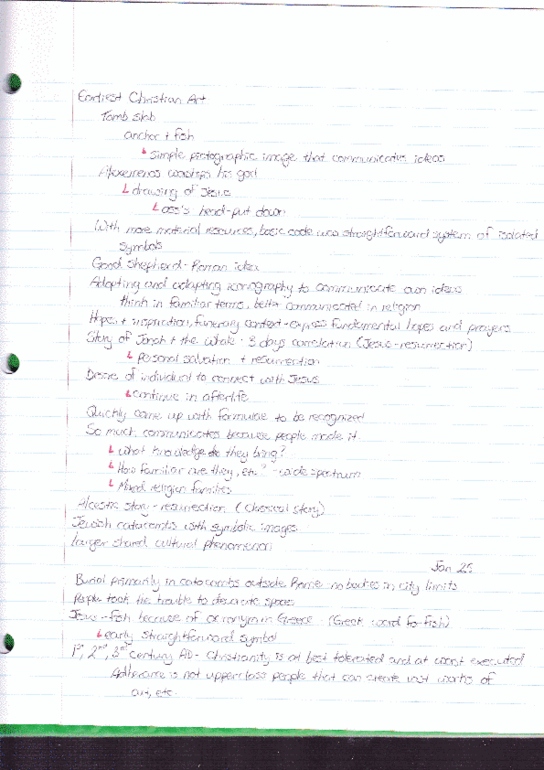 Earliest Christian Art
Tomb slab
anchor + fish
↳ simple pictographic image that communicates ideas
Alexemenos worships his god
↳ drawing of Jesus
↳ ass's head - put down
With more material resources, basic code was straightforward system of isolated
symbols
Good Shepherd - Roman idea
Adopting and adapting iconography to communicate own ideas
think in familiar terms, better communicated in religion
Hope + inspiration, funerary context - express fundamental hopes and prayers
Story of Jonah + the whale - 3 days correlation (Jesus - resurrection)
↳ personal salvation + resurrection
Desire of individual to connect with Jesus
↳ continue in afterlife
Quickly came up with formulae to be recognized
So much communicates because people made it
↳ What knowledge do they bring?
↳ How familiar are they, etc? - wide spectrum
↳ Mixed religion families
Alcestis story - resurrection (Classical story)
Jewish catacombs with symbolic images
Larger shared cultural phenomenon
Jan 25
Burial primarily in catacombs outside Rome no bodies in city limits
People took the trouble to decorate spaces
Jesus - fish because of acronym in Greece (Greek word for fish)
↳ early straightforward symbol
1st, 2nd, 3rd century AD - Christianity is at best tolerated and at worst executed
is not upperclass people that can create vast works of
art, etc.